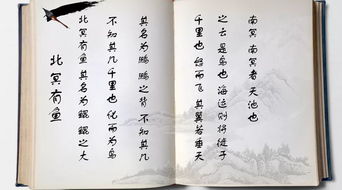 北冥有鱼
北冥有鱼 其名为鲲 鲲之大
不知其几千里也 化而为鸟
其名为鹏 鹏之背 不知其几
千里也 怒而飞 其翼若垂天
之云 是鸟也 海运则将徙于
南冥 南冥者 天池也